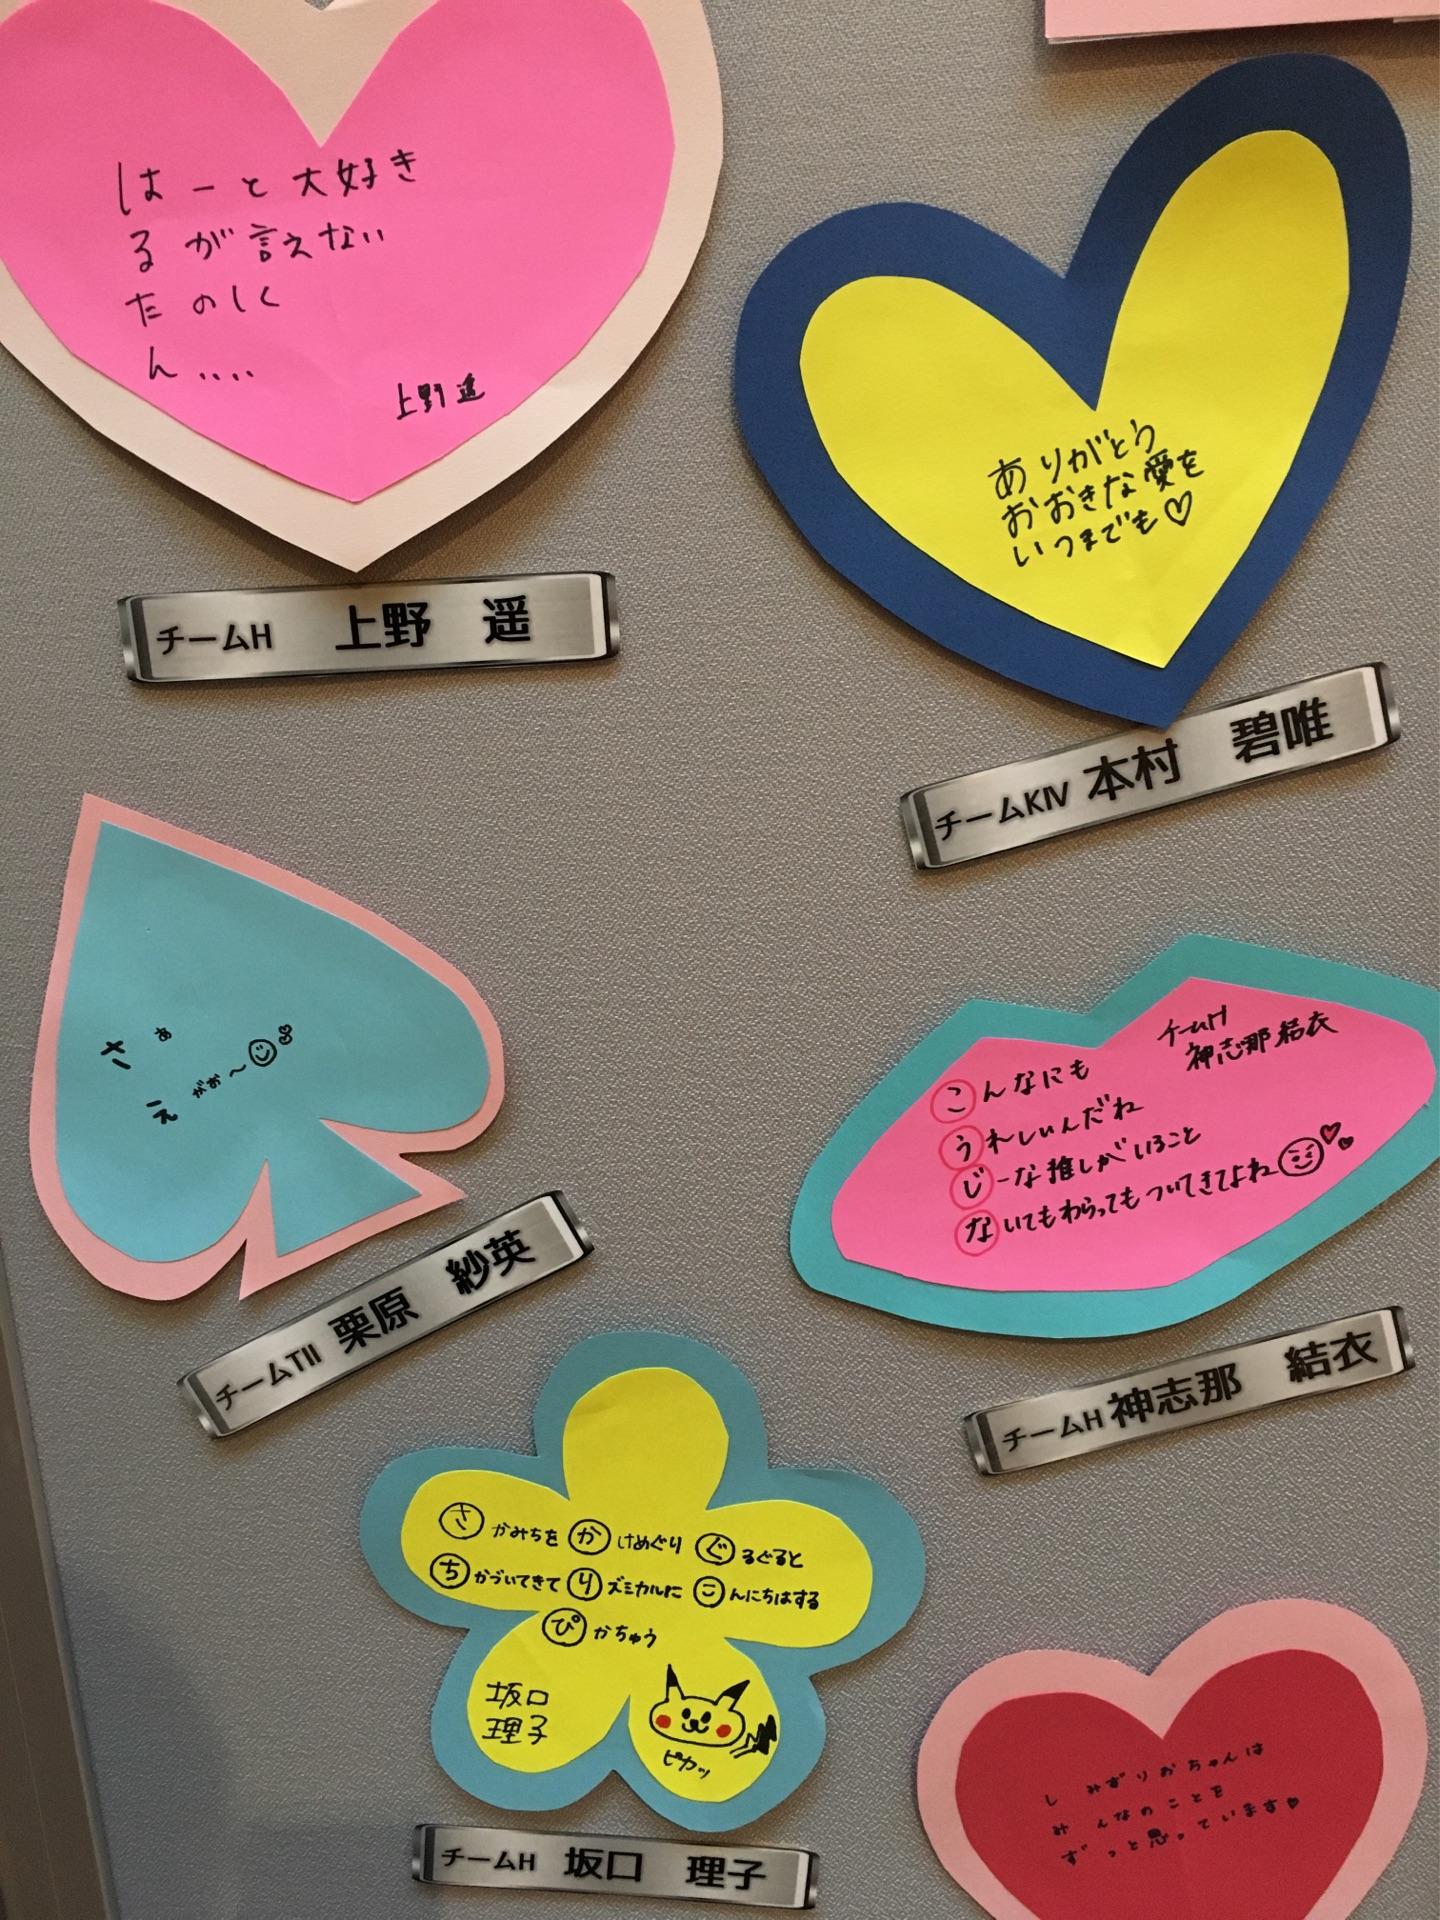 はーと大好き
るが言えない
たのしく
ん....
上野遥
チームH 上野 遥
ありがとう
おおきな愛を
いつまでも♡
チームKIV 本村 碧唯
さぁ
えがお〜
チームTII 栗原 紗英
チームH
神志那結衣
こんなにも
うれしいんだね
じーな推しがいること
ないてもわらってもついてきてよね
チームH 神志那 結衣
さかみちをかけめぐりぐるぐると
ちかづいてきてリズミカルにこんにちはする
ぴかちゅう
坂口
理子
ピカッ
チームH 坂口 理子
しみずりおちゃんは
みんなのことを
ずっと思っています♡